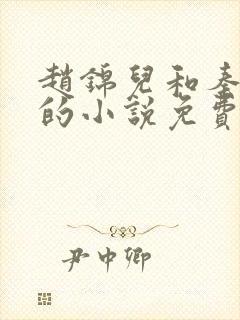 趙錦兒和秦
的小說免費
尹中卿